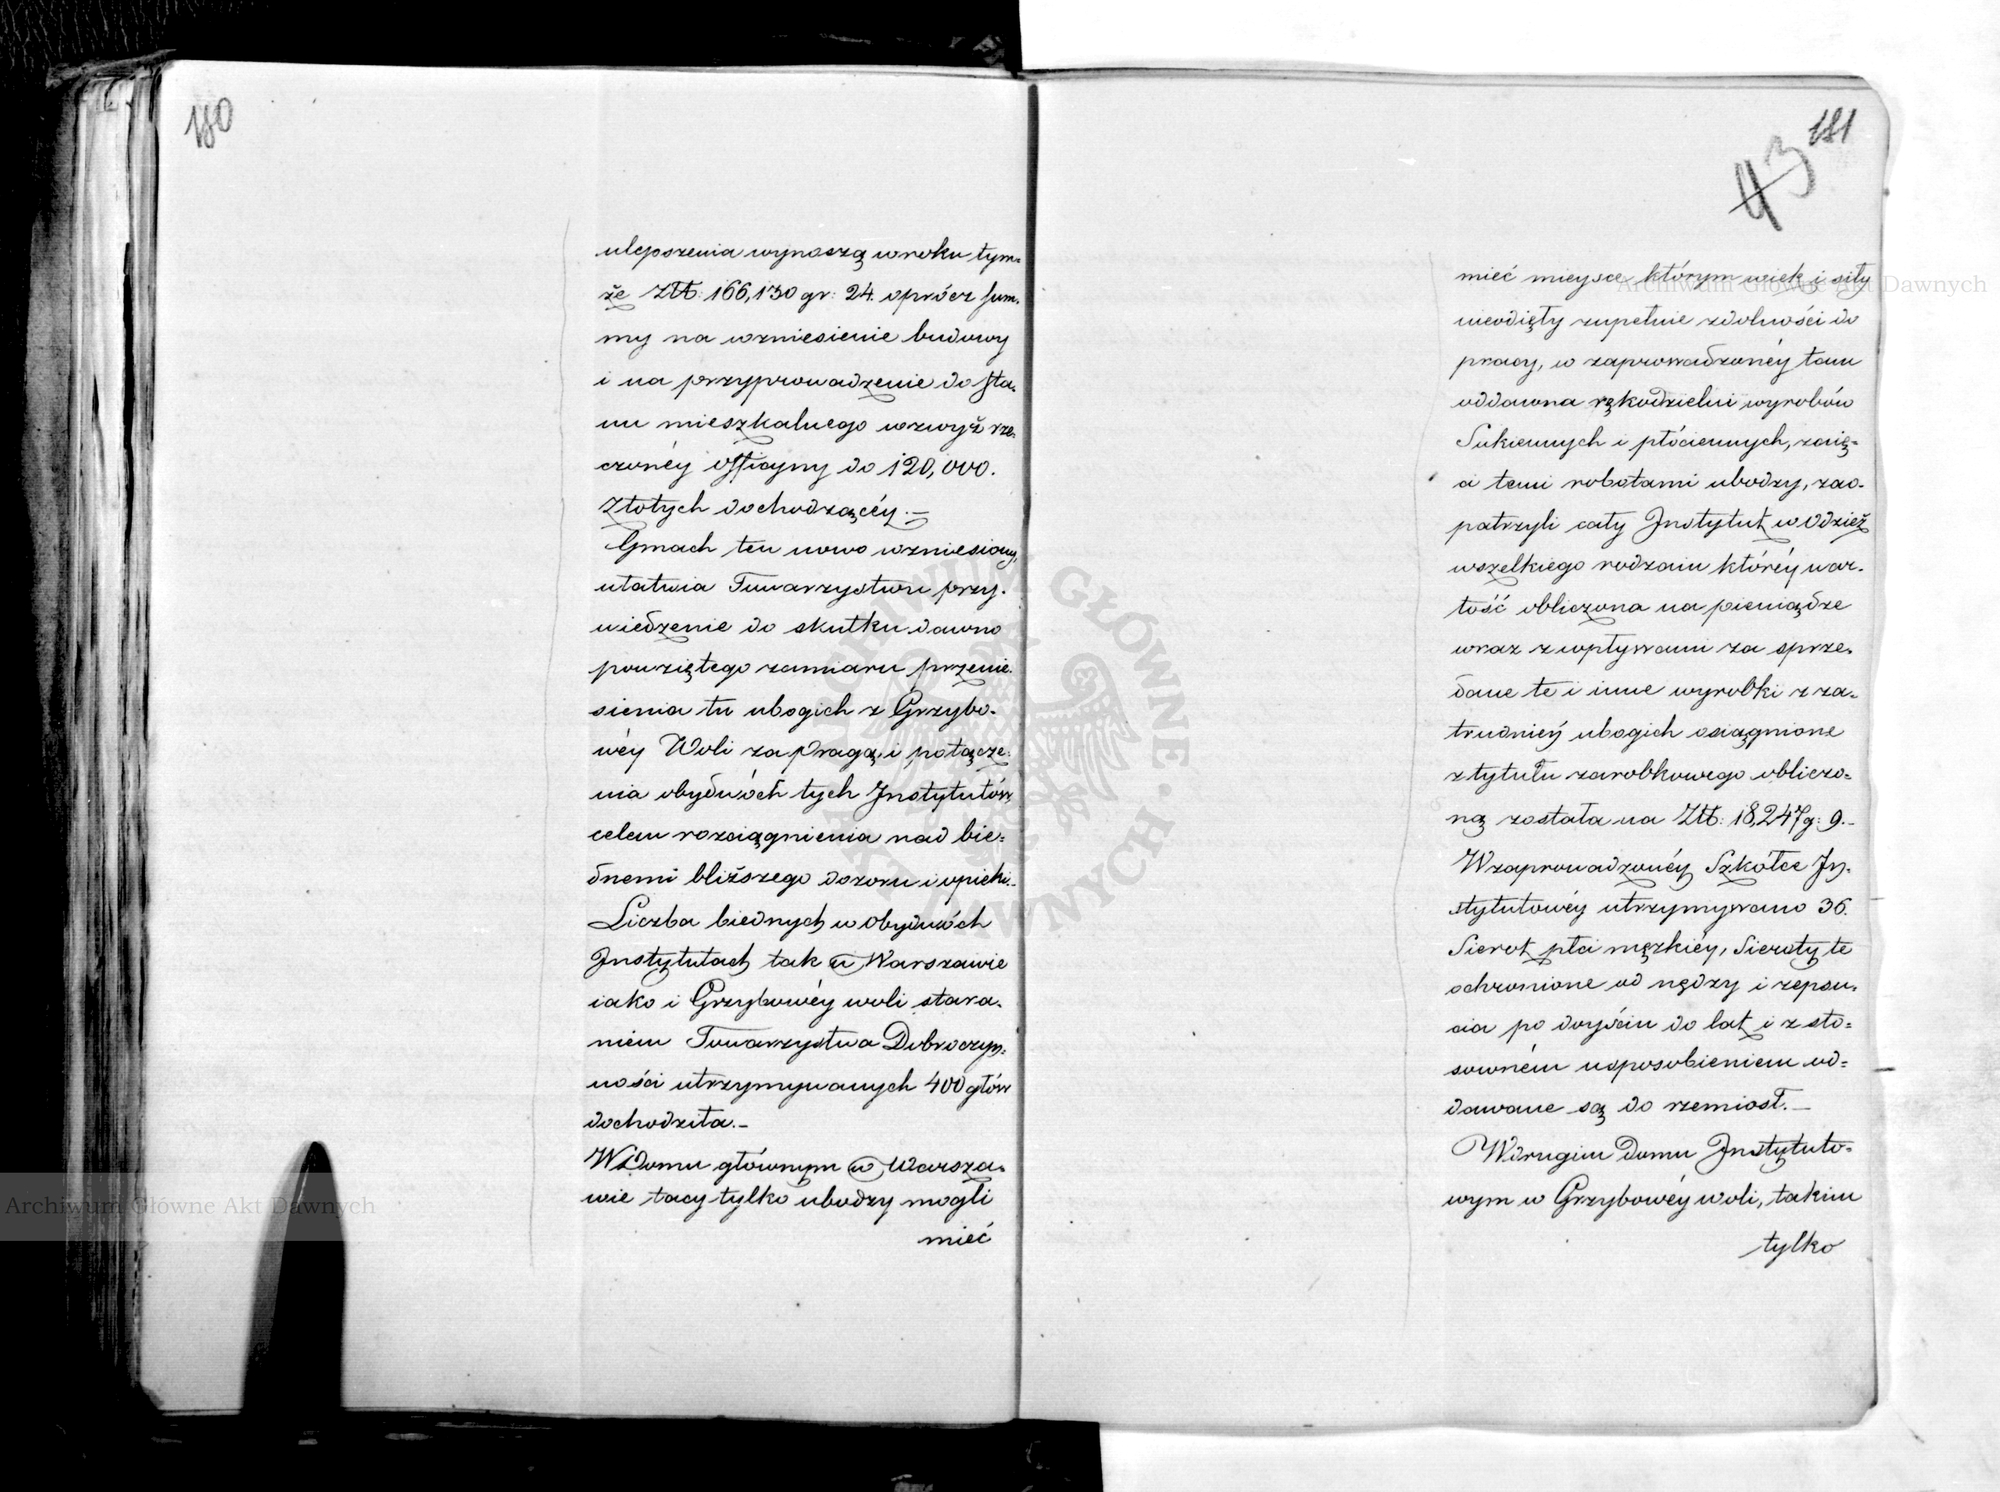 180
ulepszenia wynoszą w roku tym=
że Złł: 166,130 gr: 24. oprócz sum.
my na wzniesienie budowy
i na przyprowadzenie do sta.
nu mieszkalnego wzwyż rze.
czonéy officyny do 120,000.
Złotych dochodzącéy.—
Gmach ten nowo wzniesiony,
ułatwia Towarzystwu przy.
wiedzenie do skutku dawno
powziętego zamiaru przenie.
sienia tu ubogich z Grzybo.
wéy Woli za Pragą, i połącze.
nia obydwóch tych Instytutów
celem rozciągnienia nad bie=
dnemi bliższego dozoru i opieki.—
Liczba biednych w obydwóch
Instytutach tak w Warszawie
iako i Grzybowéy woli stara.
niem Towarzystwa Dobroczyn.
ności utrzymywanych 400 głów
dochodziła.—
W Domu głównym w Warsza.
wie tacy tylko ubodzy mogli
mieć
181
43
mieć mieysce którym wiek i siły
nieodięły zupełnie zdolności do
pracy, w zaprowadzonéy tam
oddawna rękodzielni wyrobów
Sukiennych i płóciennych, zaię=
ci temi robotami ubodzy, zao.
patrzyli cały Instytut w odzież
wszelkiego rodzaiu któréy war.
tość obliczona na pieniądze
wraz z wpływami za sprze.
dane te i inne wyrobki z za=
trudnień ubogich osiągnione
z tytułu zarobkowego obliczo=
ną została na Złł: 18,247 g: 9.—
W zaprowadzonéy Szkółce In.
stytutowéy utrzymywano 36.
Sierot płci męzkiéy, Sieroty te
ochronione od nędzy i zepsu.
cia po doyściu do lat i z sto=
sowném usposobieniem od=
dawane są do rzemiosł.—
W drugim Domu Instytuto=
wym w Grzybowéy woli, takim
tylko
Archiwum Główne Akt Dawnych
Archiwum Główne Akt Dawnych
ARCHIWUM GŁÓWNE AKT DAWNYCH